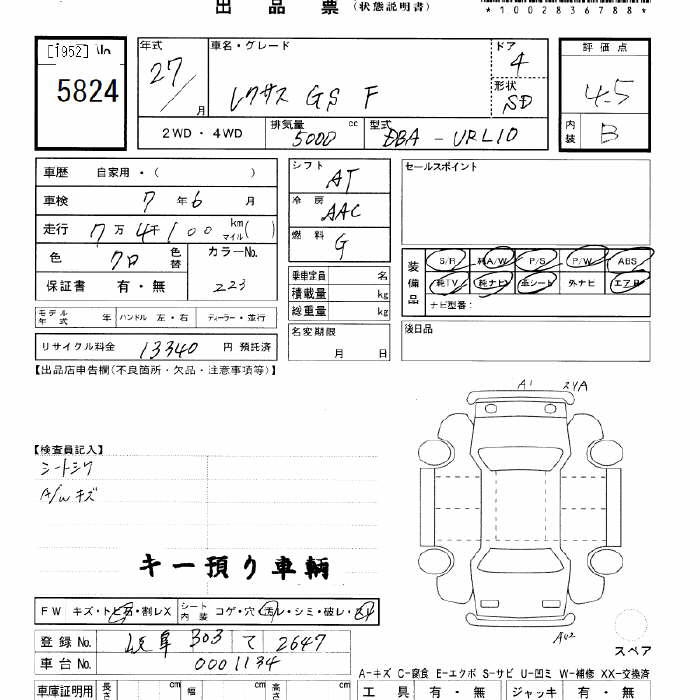 出品票(状態説明書)
*1002836788*
[1952] 5824
年式 27/ 月
車名・グレード レクサス GS F
ドア 4
形状 SD
評価点 4.5
内装 B
2WD・4WD
排気量 5000 cc
型式 DBA-URL10
車歴 自家用・( )
シフト AT
セールスポイント
車検 7年6月
冷房 AAC
走行 7万4千100 km マイル( )
燃料 G
色 クロ 色替
カラーNo. 223
保証書 有・無
乗車定員 名
積載量 kg
総重量 kg
装備品 S/R 純A/W P/S P/W ABS
純TV 純ナビ 革シート 外ナビ エアB
ナビ型番:
モデル年式 年 ハンドル 左・右 ディーラー・並行
名変期限 月 日
後日品
リサイクル料金 13340 円 預託済
【出品店申告欄(不良箇所・欠品・注意事項等)】
A1
【検査員記入】
シートシワ
A/W キズ
キー預り車輌
FW キズ・トビ石・割レX シート内装 コゲ・穴・汚レ・シミ・破レ・スレ
登録No. 岐阜 303 て 2647
スペア
車台No. 0001134
A-キズ C-腐食 E-エクボ S-サビ U-凹ミ W-補修 XX-交換済
車庫証明用 長さ cm 幅 cm 高さ cm
工具 有・無 ジャッキ 有・無